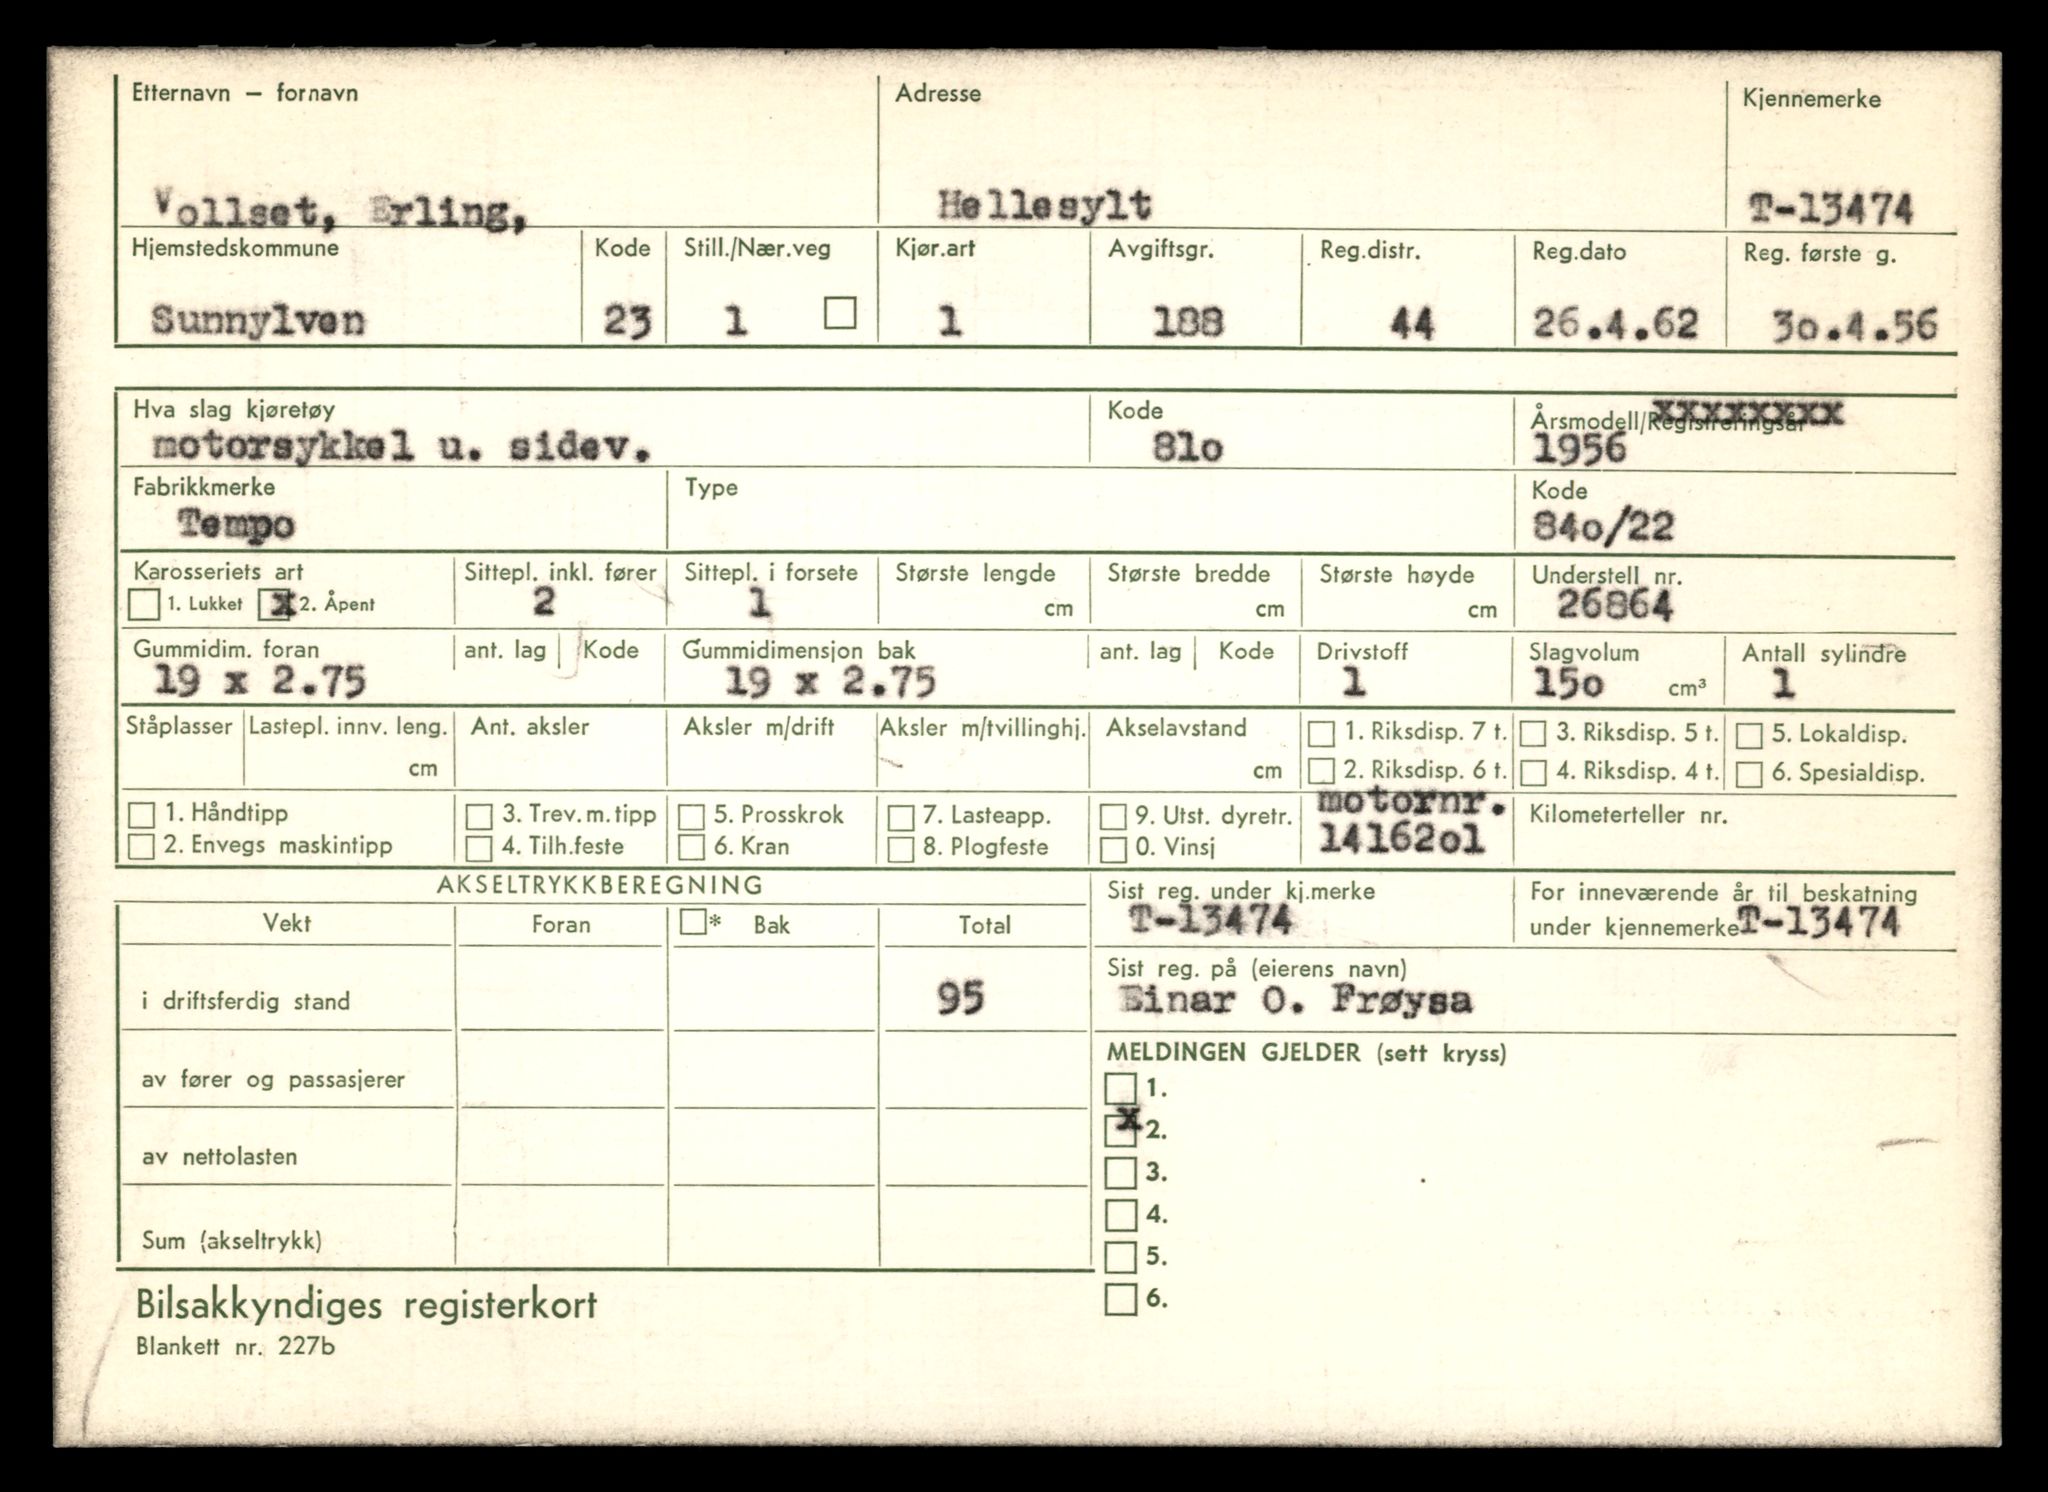 Etternavn – fornavn Adresse Kjennemerke
Vollset, Erling, Hellesylt T-13474
Hjemstedskommune Kode Still./Nær.veg Kjør.art Avgiftsgr. Reg.distr. Reg.dato Reg. første g.
Sunnylven 23 1 1 188 44 26.4.62 3o.4.56
Hva slag kjøretøy Kode Årsmodell/Registreringsår xxxxxxxx
motorsykkel u. sidev. 81o 1956
Fabrikkmerke Type Kode
Tempo 84o/22
Karosseriets art Sittepl. inkl. fører Sittepl. i forsete Største lengde Største bredde Største høyde Understell nr.
1. Lukket x 2. Åpent 2 1 cm cm cm 26864
Gummidim. foran ant. lag Kode Gummidimensjon bak ant. lag Kode Drivstoff Slagvolum Antall sylindre
19 x 2.75 19 x 2.75 1 15o cm³ 1
Ståplasser Lastepl. innv. leng. Ant. aksler Aksler m/drift Aksler m/tvillinghj. Akselavstand 1. Riksdisp. 7 t. 3. Riksdisp. 5 t. 5. Lokaldisp.
cm cm 2. Riksdisp. 6 t. 4. Riksdisp. 4 t. 6. Spesialdisp.
1. Håndtipp 3. Trev. m. tipp 5. Prosskrok 7. Lasteapp. 9. Utst. dyretr. motornr. Kilometerteller nr.
2. Envegs maskintipp 4. Tilh.feste 6. Kran 8. Plogfeste 0. Vinsj 14162o1
AKSELTRYKKBEREGNING Sist reg. under kj.merke For inneværende år til beskatning
Vekt Foran * Bak Total T-13474 under kjennemerke T-13474
Sist reg. på (eierens navn)
i driftsferdig stand 95 Einar O. Frøysa
MELDINGEN GJELDER (sett kryss)
av fører og passasjerer 1.
x 2.
av nettolasten 3.
4.
Sum (akseltrykk) 5.
Bilsakkyndiges registerkort 6.
Blankett nr. 227b